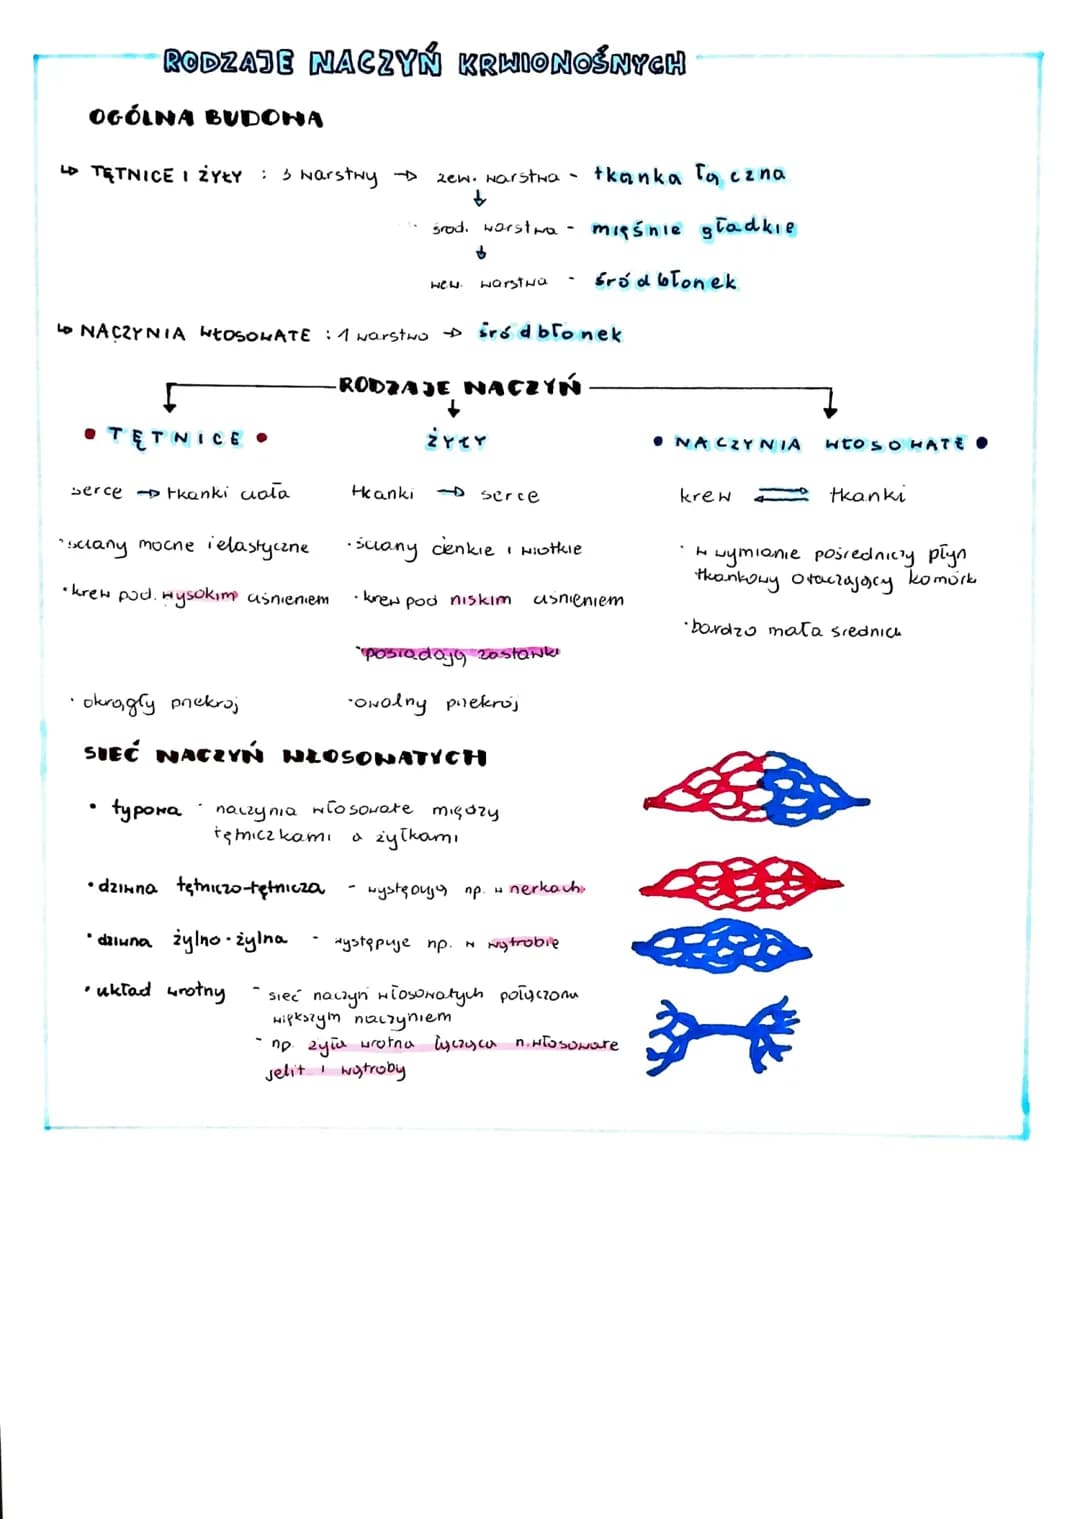 RODZAJE NACZYŃ KRWIONOŚNYCH
OGÓLNA BUDOWA
↳ TĘTNICE I ŻYŁY : 3 warstwy → zew. warstwa - tkanka łączna
↓
środ. warstwa - mięśnie gładkie
↓
wew. warstwa - śródbłonek
↳ NACZYNIA WŁOSOWATE : 1 warstwa → śródbłonek
RODZAJE NACZYŃ
• TĘTNICE • ŻYŁY • NACZYNIA WŁOSOWATE •
serce → tkanki ciała tkanki → serce krew ⇄ tkanki
· ściany mocne i elastyczne · ściany cienkie i wiotkie · w wymianie pośredniczy płyn
tkankowy otaczający komórki
· krew pod. wysokim ciśnieniem · krew pod niskim ciśnieniem
· bardzo mała średnica
· posiadają zastawki
· okrągły przekrój · owalny przekrój
SIEĆ NACZYŃ WŁOSOWATYCH
• typowa - naczynia włosowate między
tętniczkami a żyłkami
• dziwna tętniczo-tętnicza - występują np. w nerkach
• dziwna żylno-żylna - występuje np. w wątrobie
• układ wrotny - sieć naczyń włosowatych połączona
większym naczyniem
- np. żyła wrotna łącząca n. włosowate
jelit i wątroby